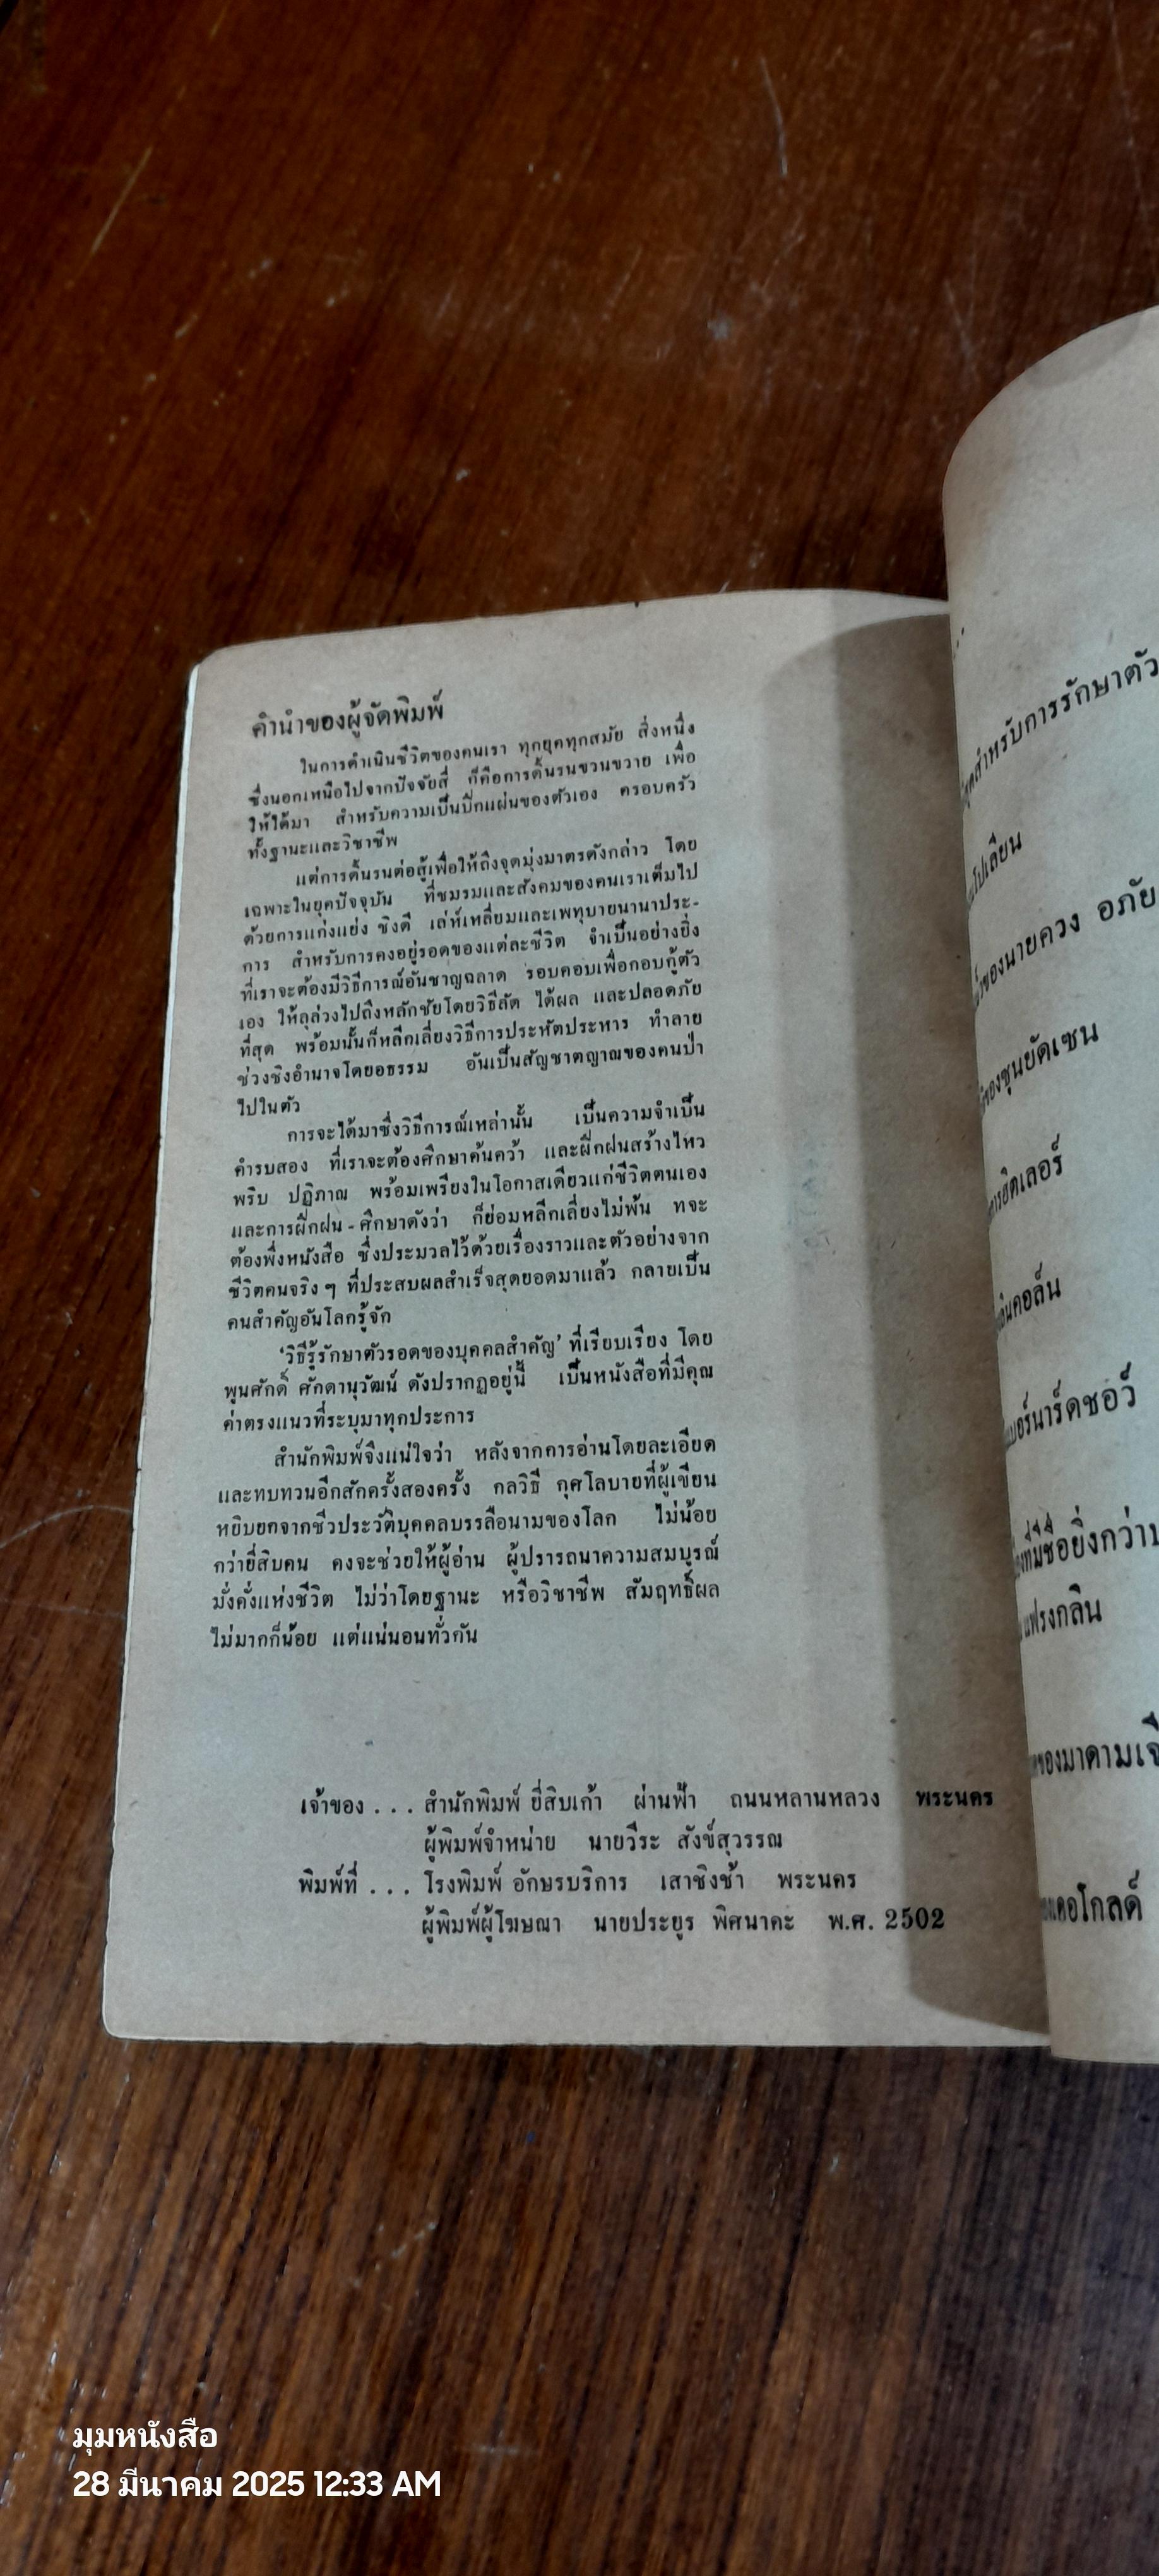 คำนำของผู้จัดพิมพ์
ในการดำเนินชีวิตของคนเรา ทุกยุคทุกสมัย สิ่งหนึ่ง
ซึ่งนอกเหนือไปจากปัจจัยสี่ ก็คือการดิ้นรนขวนขวาย เพื่อ
ให้ได้มา สำหรับความเป็นปึกแผ่นของตัวเอง ครอบครัว
ทั้งฐานะและวิชาชีพ
แต่การดิ้นรนต่อสู้เพื่อให้ถึงจุดมุ่งมาตรดังกล่าว โดย
เฉพาะในยุคปัจจุบัน ที่ชมรมและสังคมของคนเราเต็มไป
ด้วยการแก่งแย่ง ชิงดี เล่ห์เหลี่ยมและเพทุบายนานาประ-
การ สำหรับการคงอยู่รอดของแต่ละชีวิต จำเป็นอย่างยิ่ง
ที่เราจะต้องมีวิธีการณ์อันชาญฉลาด รอบคอบเพื่อกอบกู้ตัว
เอง ให้ลุล่วงไปถึงหลักชัยโดยวิธีลัด ได้ผล และปลอดภัย
ที่สุด พร้อมนั้นก็หลีกเลี่ยงวิธีการประหัตประหาร ทำลาย
ช่วงชิงอำนาจโดยอธรรม อันเป็นสัญชาตญาณของคนป่า
ไปในตัว
การจะได้มาซึ่งวิธีการณ์เหล่านั้น เป็นความจำเป็น
คำรบสอง ที่เราจะต้องศึกษาค้นคว้า และฝึกฝนสร้างไหว
พริบ ปฏิภาณ พร้อมเพรียงในโอกาสเดียวแก่ชีวิตตนเอง
และการฝึกฝน - ศึกษาดังว่า ก็ย่อมหลีกเลี่ยงไม่พ้น ทจะ
ต้องพึ่งหนังสือ ซึ่งประมวลไว้ด้วยเรื่องราวและตัวอย่างจาก
ชีวิตคนจริง ๆ ที่ประสบผลสำเร็จสุดยอดมาแล้ว กลายเป็น
คนสำคัญอันโลกรู้จัก
‘วิธีรู้รักษาตัวรอดของบุคคลสำคัญ’ ที่เรียบเรียง โดย
พูนศักดิ์ ศักดานุวัฒน์ ดังปรากฏอยู่นี้ เป็นหนังสือที่มีคุณ
ค่าตรงแนวที่ระบุมาทุกประการ
สำนักพิมพ์จึงแน่ใจว่า หลังจากการอ่านโดยละเอียด
และทบทวนอีกสักครั้งสองครั้ง กลวิธี กุศโลบายที่ผู้เขียน
หยิบยกจากชีวประวัติบุคคลบรรลือนามของโลก ไม่น้อย
กว่ายี่สิบคน คงจะช่วยให้ผู้อ่าน ผู้ปรารถนาความสมบูรณ์
มั่งคั่งแห่งชีวิต ไม่ว่าโดยฐานะ หรือวิชาชีพ สัมฤทธิ์ผล
ไม่มากก็น้อย แต่แน่นอนทั่วกัน
เจ้าของ . . . สำนักพิมพ์ ยี่สิบเก้า ผ่านฟ้า ถนนหลานหลวง พระนคร
ผู้พิมพ์จำหน่าย นายวีระ สังข์สุวรรณ
พิมพ์ที่ . . . โรงพิมพ์ อักษรบริการ เสาชิงช้า พระนคร
ผู้พิมพ์ผู้โฆษณา นายประยูร พิศนาคะ พ.ศ. 2502
สำหรับการรักษาตัว
โปเลียน
ของนายควง อภัย
ของซุนยัดเซน
ฮิตเลอร์
คอล์น
เบอร์นาร์ดชอว์
ที่มีชื่อยิ่งกว่า
แฟรงกลิน
ของมาดามเจี
โกลด์
มุมหนังสือ
28 มีนาคม 2025 12:33 AM